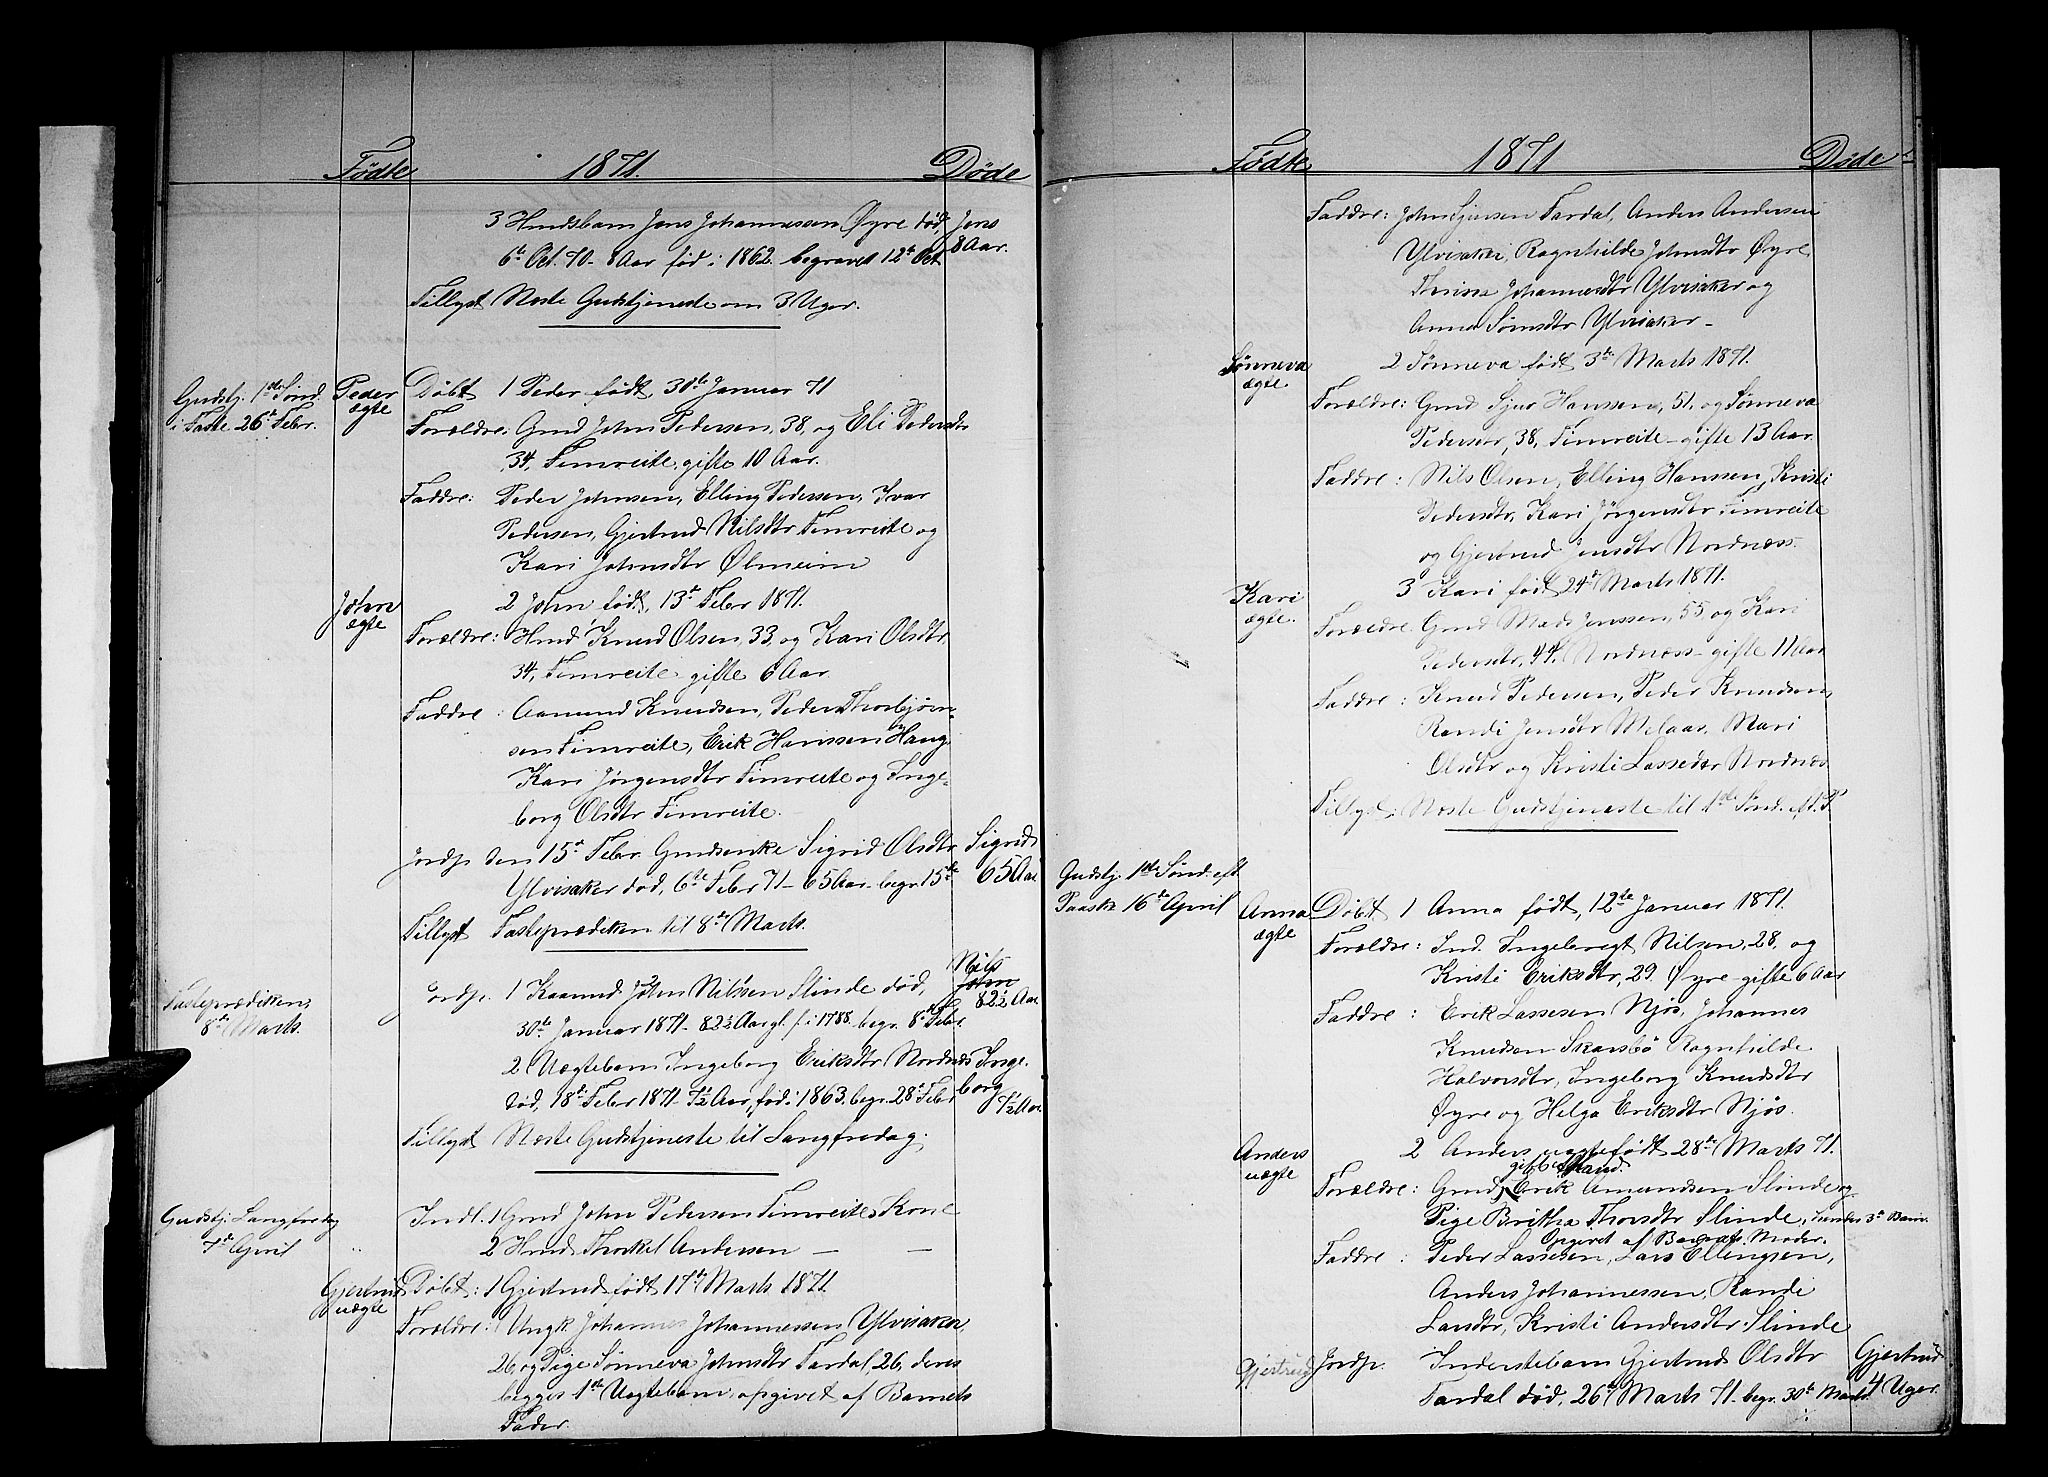 Fødte 1871. Døde
3 Huusbarn Jens Johannessen Øyre død, Jens
6te Oct. 70 - 8 Aar fød i 1862. begravet 12te Oct. 8 Aar.
Tillyst Næste Gudstjeneste om 3 Uger.
Gudstj. 1ste Sønd. Peder Døbt 1 Peder født 30te Januar 71
i Faste 26de Febr. ægte
Forældre: Gmd John Pedersen, 38, og Eli Pedersdtr
34, Fimreite, gifte 10 Aar.
Faddre: Peder Johnsen, Elling Pedersen, Ivar
Pedersen, Gjertrud Nilsdtr Fimreite og
Kari Johnsdtr Ølmeim
John 2 John født, 13de Febr 1871.
ægte Forældre: Hmd Knud Olsen 33, og Kari Olsdtr,
34, Fimreite gifte 6 Aar.
Faddre: Aamund Knudsen, Peder Thorbjørn-
sen Fimreite, Erik Hanssen Haug
Kari Jørgensdtr Fimreite og Inge-
borg Olsdtr Fimreite.
Jordp. den 15de Febr. Gmdsenke Sigrid Olsdtr Sigrid
Ylvisaker død, 6te Febr 71 - 65 Aar - begr. 15de 65 Aar
Tillyst Fasteprædiken til 8de Marts.
Fasteprædiken Jordp. 1 Kaarmd. John Nilssen Slinde død, Nils John
8de Marts. 30te Januar 1871. 82½ Aar gl. f. i 1788. begr. 8de Febr. 82½ Aar
2 Uægtebarn Ingeborg Eriksdtr Nordnæs Inge-
død, 18de Febr 1871 - 7½ Aar, fød i 1863. begr. 28de Febr borg 7½ Aar.
Tillyst Næste Gudstjeneste til Langfredag.
Gudstj. Langfredag Indl. 1 Gmd John Pedersen Fimreites Kone
7de April " 2 Hmd. Thorkel Andersen — —
Gjertrud Døbt: 1 Gjertrud født 17de Marts 1871.
uægte Forældre: Ungk. Johannes Johannessen Ylvisaker,
26, og Pige Sønneva Johnsdtr Fardal, 26, deres
begges 1ste Uægtebarn, opgivet af Barnets
Fader.
Fødte 1871 Døde
Faddre: John Sjursen Fardal, Anders Andersen
Ylvisaker, Ragnhilde Johnsdtr Øyre,
Johannesdtr Ylvisaker og
Anna Simsdtr Ylvisaker -
Sønneva 2 Sønneva født 3de Marts 1871.
ægte. Forældre: Gmd Sjur Hanssen, 51, og Sønneva
Pedersdtr, 38, Fimreite - gifte 13 Aar
Faddre: Nils Olsen, Elling Hanssen, Kristi
Pedersdtr, Kari Jørgensdtr Fimreite
og Gjertrud Jensdtr Nordnæss.
Kari 3 Kari født 24de Marts 1871.
ægte. Forældre Gmd Mads Jenssen, 55 og Kari
Pedersdtr, 44, Nordnæss - gifte 11 Aar
Faddre: Knud Pedersen, Peder Knudsen,
Randi Jensdtr Melaas, Mari
Olsdtr og Kristi Lassedtr Nordnæs.
Tillyst: Næste Gudstjeneste til 1ste Sønd. eft. P
Gudstj. 1ste Sønd. eft.
Paaske 16de April Anna Døbt 1 Anna født, 12te Januar 1871.
ægte Forældre: Ind. Ingebregt Nilsen, 28, og
Kristi Eriksdtr, 29. Øyre - gifte 6 Aar
Faddre: Erik Lassesen Njøs, Johannes
Knudsen Skarsbø Ragnhilde
Halvorsdtr, Ingeborg Knudsdtr
Øyre og Helga Eriksdtr Njøs.
Anders 2 Anders uægte født 28de Marts 71.
uægte gift Mand.
Forældre: Gmd Erik Amundsen Slinde og
Pige Brithe Thorsdtr Slinde, hendes 3de Barn.
Opgivet af Barnets Moder.
Faddre: Peder Lassesen, Lars Ellingsen,
Anders Johannessen, Randi
Larsdtr, Kristi Andersdtr Slinde
Gjertrud Jordp. Inderstebarn Gjertrud Olsdtr Gjertrud
Fardal død, 26de Marts 71. begr. 30te Marts. 4 Uger.